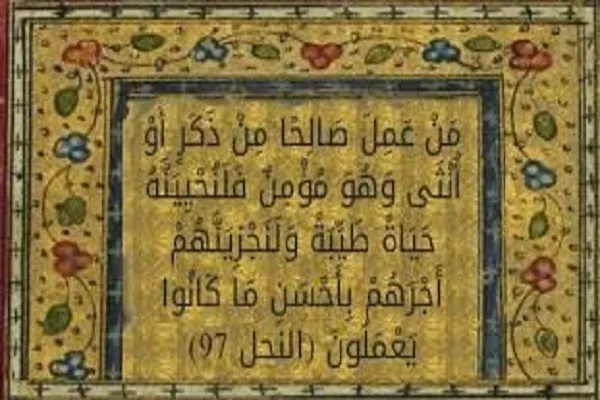 مَنْ عَمِلَ صَالِحًا مِنْ ذَكَرٍ أَوْ
أُنْثَى وَهُوَ مُؤْمِنٌ فَلَنُحْيِيَنَّهُ
حَيَاةً طَيِّبَةً وَلَنَجْزِيَنَّهُمْ
أَجْرَهُمْ بِأَحْسَنِ مَا كَانُوا
يَعْمَلُونَ (النحل 97)